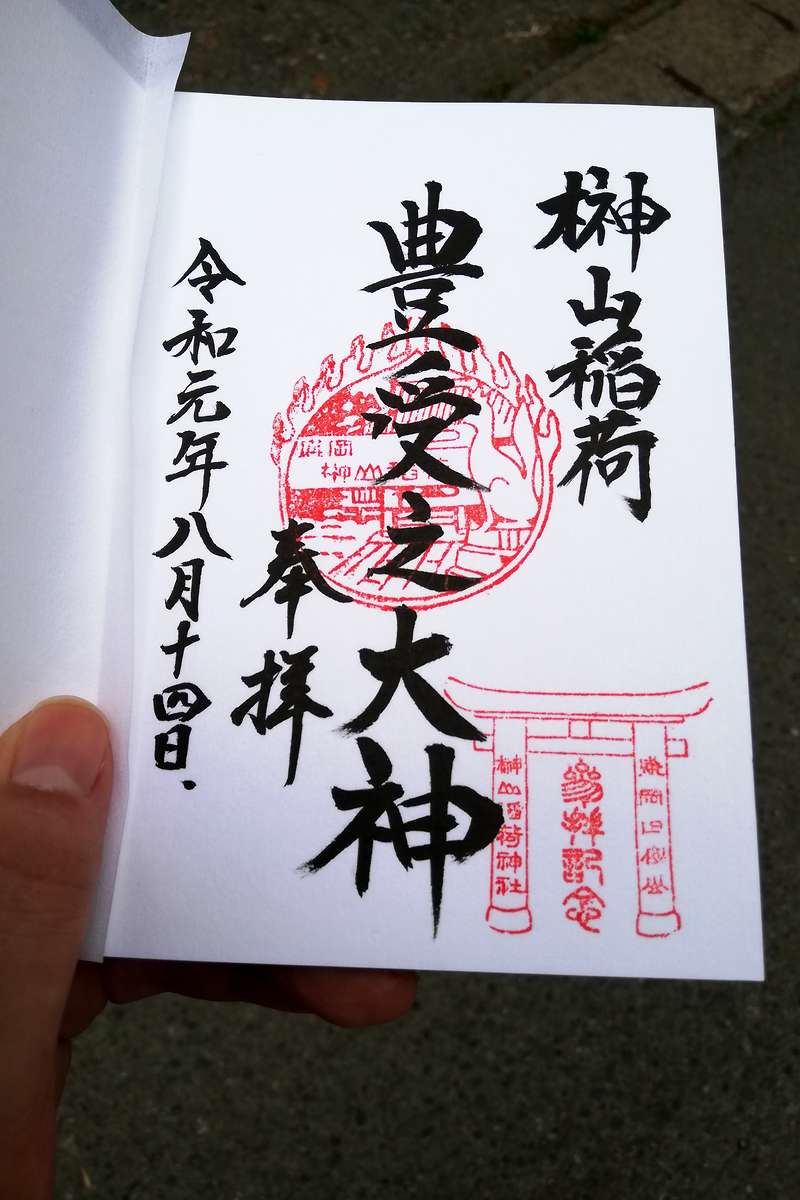 榊山稲荷
豊受之大神
奉拝
令和元年八月十四日
盛岡
榊山
参拝記念
榊山稲荷神社